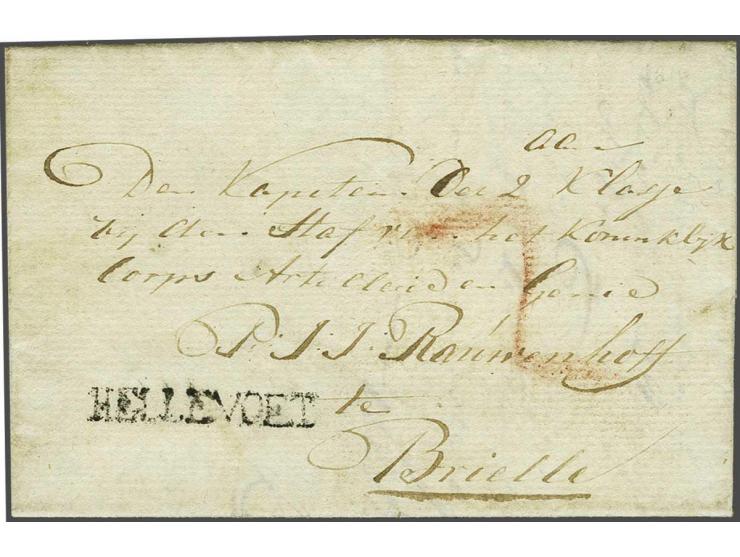 aan
Den Kapitein der 2 Klasse
bij den Staf van het Koninklijk
Corps Artillerie en Genie
P: J: J: Rauwenhoff
HELLEVOET
te
Brielle